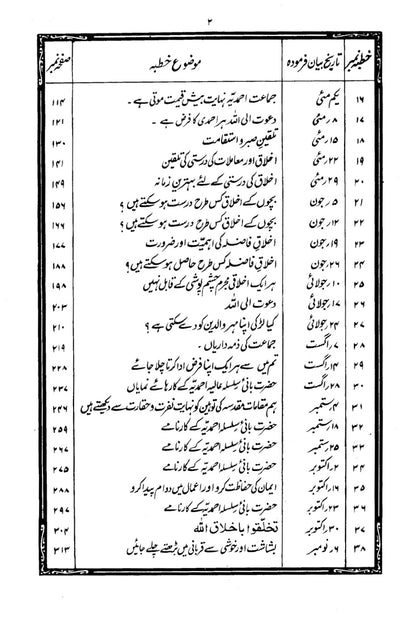 ۲
خطبہ نمبر | تاریخ بیان فرمودہ | موضوع خطبہ | صفحہ نمبر
۱۶ | یکم مئی | جماعت احمدیہ نہایت بیش قیمت موتی ہے ۔ | ۱۱۴
۱۷ | ۸ مئی | دعوت الی اللہ ہر احمدی کا فرض ہے ۔ | ۱۲۱
۱۸ | ۱۵ مئی | تلقین صبر و استقامت | ۱۳۰
۱۹ | ۲۲ مئی | اخلاق اور معاملات کی درستی کی تلقین | ۱۴۱
۲۰ | ۲۹ مئی | اخلاق کی درستی کے لئے بہترین زمانہ | ۱۴۹
۲۱ | ۵ جون | بچوں کے اخلاق کس طرح درست ہو سکتے ہیں ؟ | ۱۵۶
۲۲ | ۱۲ جون | بچوں کے اخلاق کس طرح درست ہو سکتے ہیں ؟ | ۱۶۶
۲۳ | ۱۹ جون | اخلاق فاضلہ کی اہمیت اور ضرورت | ۱۷۷
۲۴ | ۲۶ جون | اخلاق فاضلہ کس طرح حاصل ہو سکتے ہیں ؟ | ۱۸۸
۲۵ | ۱۰ جولائی | ہر ایک اخلاقی مجرم چشم پوشی کے قابل نہیں | ۱۹۸
۲۶ | ۱۷ جولائی | دعوت الی اللہ | ۲۰۳
۲۷ | ۲۴ جولائی | کیا لڑکی اپنا مہر والدین کو دے سکتی ہے ؟ | ۲۱۰
۲۸ | ۷ اگست | جماعت کی ذمہ داریاں ۔ | ۲۱۹
۲۹ | ۱۴ اگست | تم میں سے ہر ایک اپنا فرض ادا کرتا چلا جائے | ۲۲۸
۳۰ | ۲۸ اگست | حضرت بانی سلسلہ عالیہ احمدیہ کے کارہائے نمایاں | ۲۳۷
۳۱ | ۴ ستمبر | ہم مقامات مقدسہ کی توہین کو نہایت نفرت و حقارت سے دیکھتے ہیں | ۲۴۶
۳۲ | ۱۸ ستمبر | حضرت بانی سلسلہ احمدیہ کے کارنامے | ۲۵۹
۳۳ | ۲۵ ستمبر | حضرت بانی سلسلہ احمدیہ کے کارنامے | ۲۶۷
۳۴ | ۲ اکتوبر | حضرت بانی سلسلہ احمدیہ کے کارنامے | ۲۷۵
۳۵ | ۱۶ اکتوبر | ایمان کی حفاظت کرو اور اعمال میں دوام پیدا کرو | ۲۸۸
۳۶ | ۲۳ اکتوبر | حضرت بانی سلسلہ احمدیہ کے کارنامے | ۲۹۷
۳۷ | ۳۰ اکتوبر | تخلقوا باخلاق اللہ | ۳۰۴
۳۸ | ۶ نومبر | بشاشت اور خوشی سے قربانی میں بڑھتے چلے جائیں | ۳۱۳